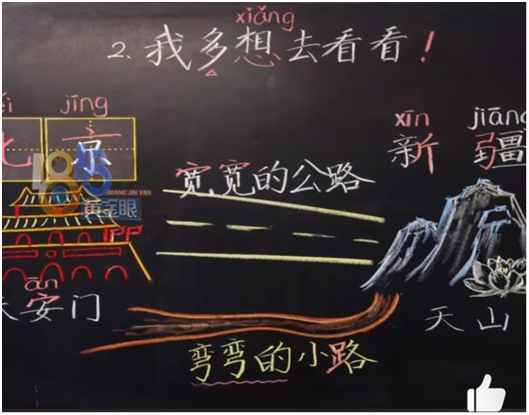 xiǎng
2.我多想去看看！
jīng
京
xīn jiāng
新疆
宽宽的公路
1818
HUANG JIN YAN
黄金眼
ān
安门
天山
弯弯的小路